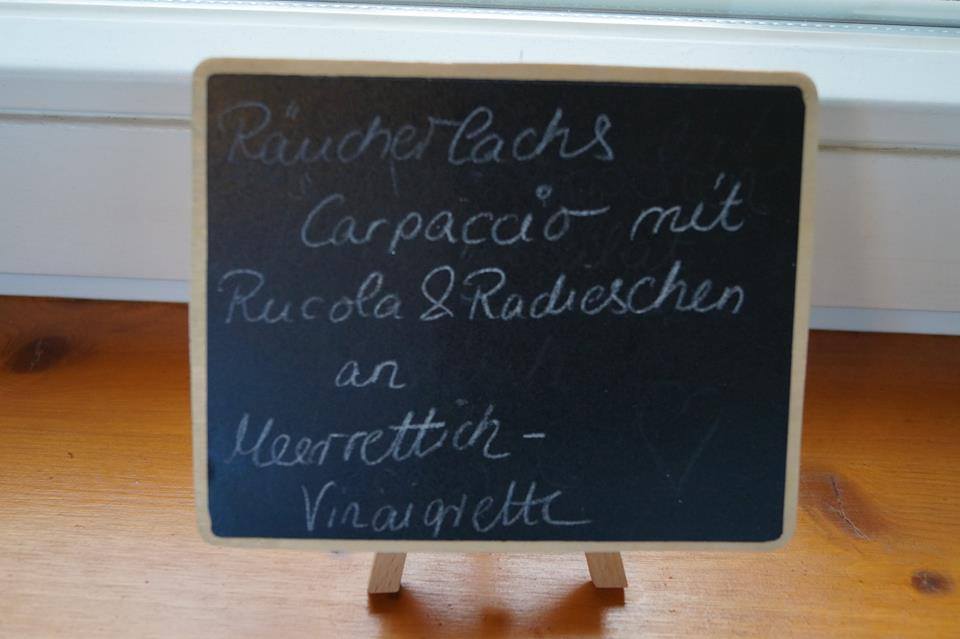 Räucherlachs
Carpaccio mit
Rucola & Radieschen
an
Meerrettich-
Vinaigrette